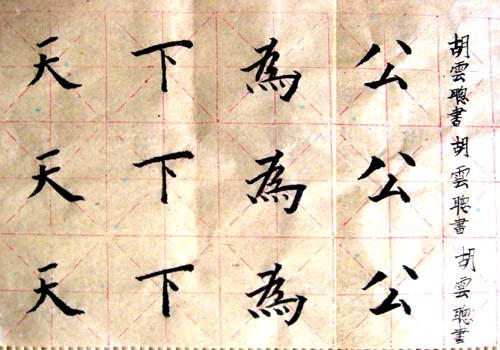 天下為公
天下為公
天下為公
胡雲聰書
胡雲聰書
胡雲聰書